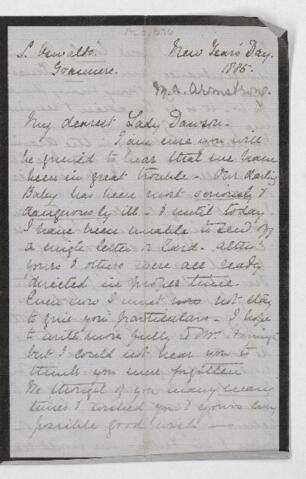 S. Oswalds.
Grasmere.
New Year's Day.
1885.
M. A. Armstrong.
My dearest Lady Dawson.
I am sure you will
be grieved to hear that we have
been in great trouble. Our darling
Baby has been most seriously &
dangerously ill - & until today
I have been unable to send off
a single letter or Card - altho'
yours & others were all ready
directed in proper time.
Even now I must not stay
to give you particulars. I hope
to write more fully to Mr.
but I could not bear you to
think you were forgotten
We thought of you many many
times & wished you & yours every
possible good wish -